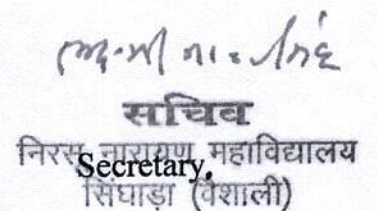 सचिव
निरस नारायण महाविद्यालय
Secretary.
सिंघाड़ा (वैशाली)